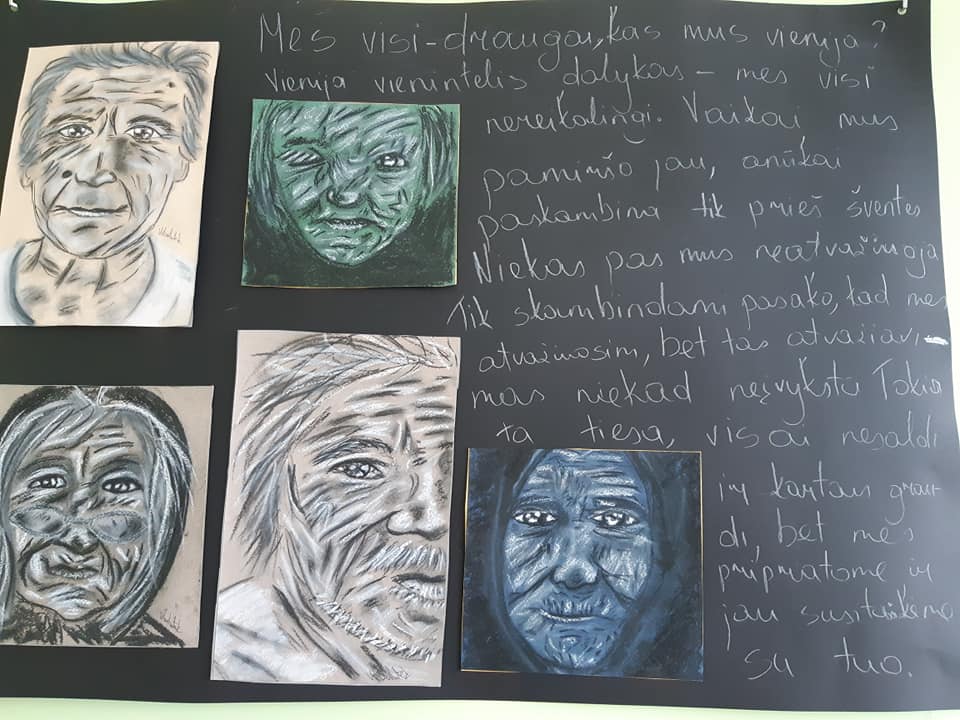 Mes visi-draugai, kas mus vienija?
Vienija vienintelis dalykas – mes visi
nereikalingi. Vaikai mus
pamiršo jau, anūkai
paskambina tik prieš šventes
Niekas pas mus neatvažinoja
Tik skambindami pasako, kad mes
atvažiuosim, bet tas atvažiavi-
mas niekad neįvyksta Tokia
ta tiesa, visai nesaldi
ir kartais grau-
di, bet mes
pripratome ir
jau susitaikėme
su tuo.